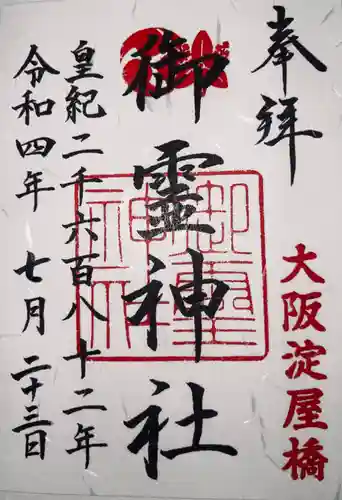 奉拝
大阪淀屋橋
御霊神社
皇紀二千六百八十二年
令和四年 七月 二十三日